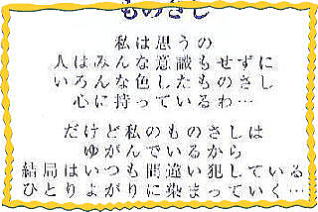 ものさし
私は思うの
人はみんな意識もせずに
いろんな色したものさし
心に持っているわ…
だけど私のものさしは
ゆがんでいるから
結局はいつも間違い犯している
ひとりよがりに染まっていく…